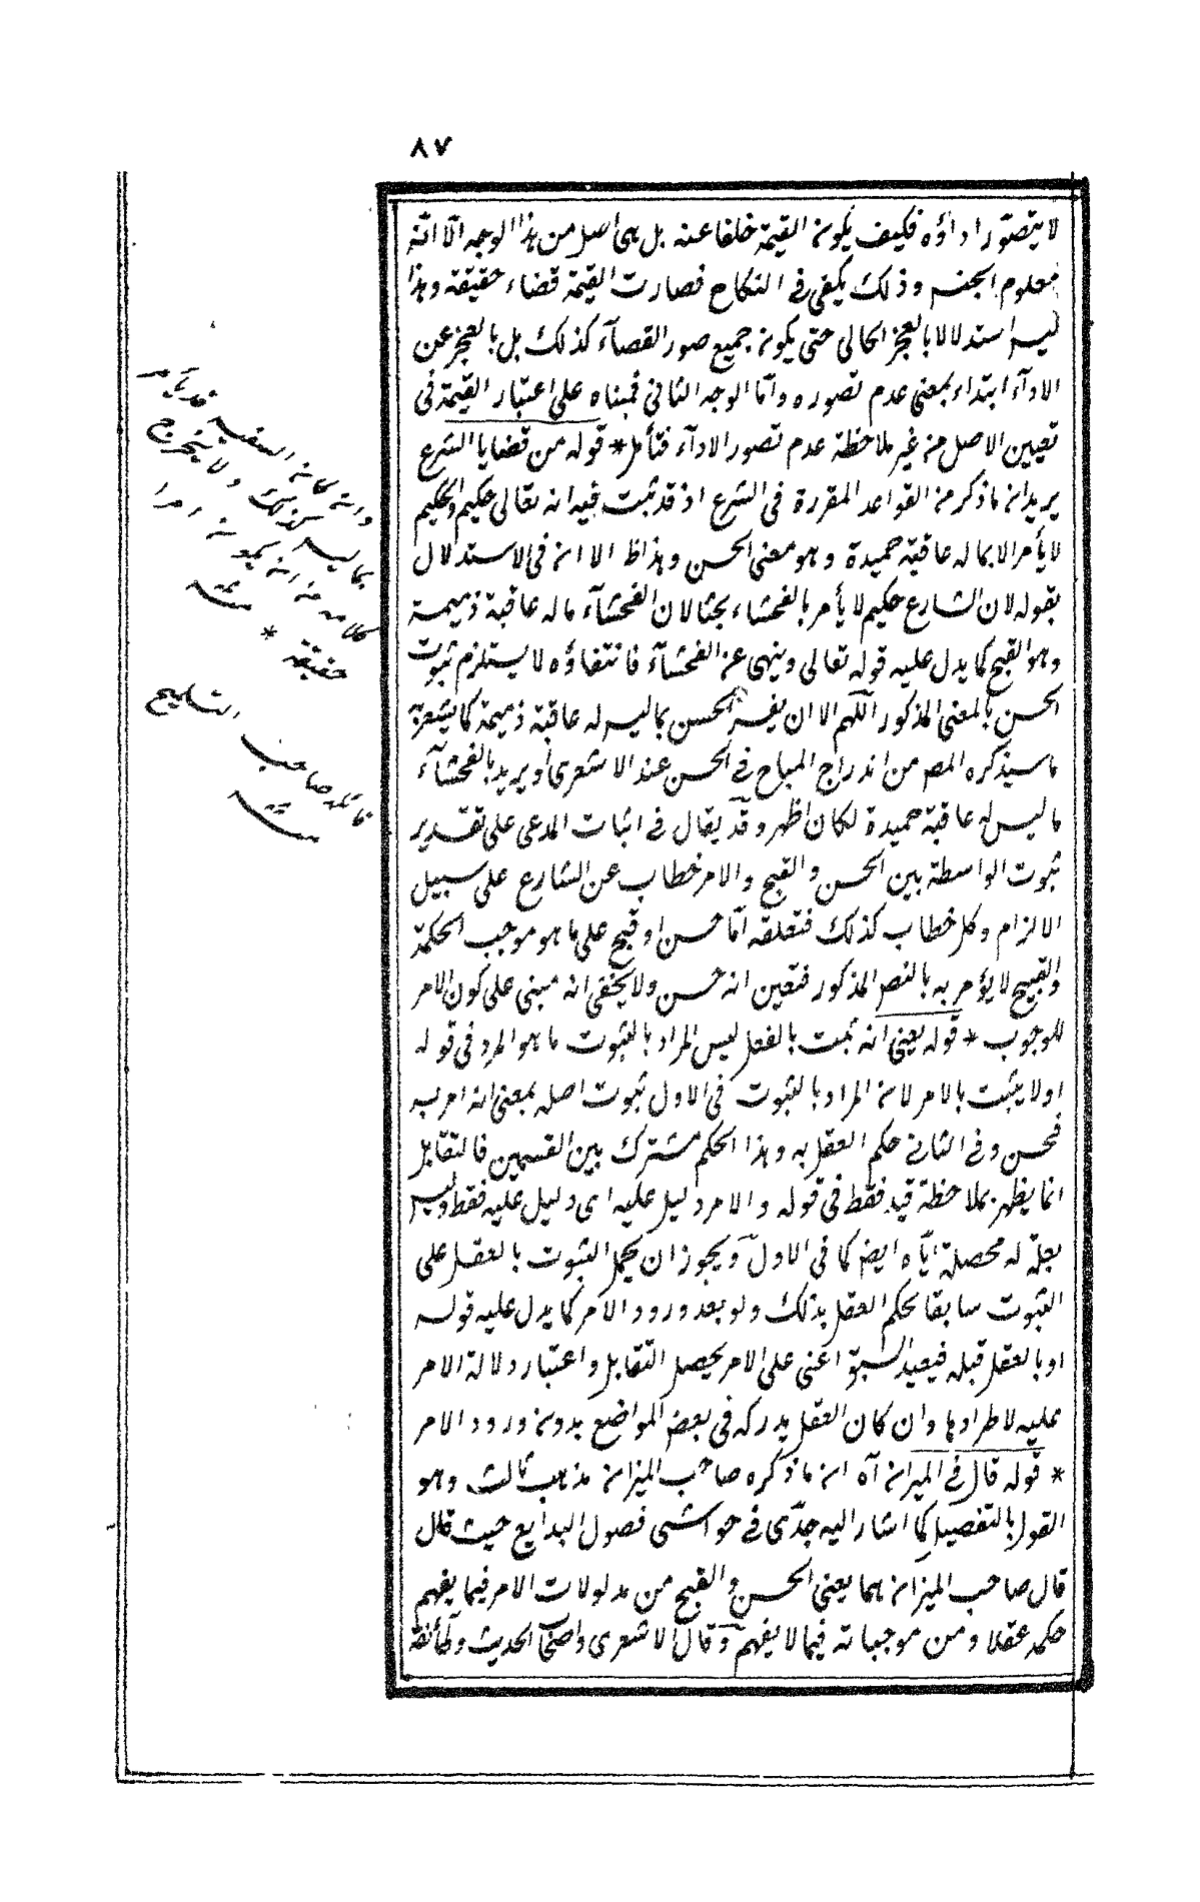 ٨٧
لا يتصور اداؤه فكيف يكون القيمة خلفا عنه بل هى اصل من هذا الوجه الا انه
معلوم الجنس وذلك يكفى فى النكاح فصارت القيمة قضاء حقيقة وهذا
ليس استدلالا بالعجز الحالى حتى يكون جميع صور القضآء كذلك بل بالعجز عن
الادآء ابتداء بمعنى عدم تصوره واما الوجه الثانى فمبناه على اعتبار القيمة فى
تعيين الاصل من غير ملاحظة عدم تصور الادآء فتأمل * قوله من قضايا الشرع
يريد ان ما ذكر من القواعد المقررة فى الشرع اذ قد ثبت فيه انه تعالى حكيم والحكيم
لا يأمر الا بما له عاقبة حميدة وهو معنى الحسن وهذا ظ الا ان فى الاستدلال
بقوله لان الشارع حكيم لا يأمر بالفحشاء بحثا لان الفحشآء ما له عاقبة ذميمة
وهو القبح كما يدل عليه قوله تعالى وينهى عن الفحشآء فانتفاؤه لا يستلزم ثبوت
الحسن بالمعنى المذكور اللهم الا ان يفسر الحسن بما ليس له عاقبة ذميمة كما يشعر به
ما سيذكره المص من اندراج المباح فى الحسن عند الاشعرى او يريد بالفحشآء
ما ليس له عاقبة حميدة لكان اظهر وقد يقال فى اثبات المدعى على تقدير
ثبوت الواسطة بين الحسن والقبح والامر خطاب عن الشارع على سبيل
الالزام وكل خطاب كذلك فتعلقه اما حسن او قبح على ما هو موجب الحكمة
والقبيح لا يؤمر به بالنص المذكور فتعين انه حسن ولا يخفى انه مبنى على كون الامر
للوجوب * قوله يعنى انه ثبت بالفعل ليس المراد بالثبوت ما هو المرد فى قوله
اولا يثبت بالامر لان المراد بالثبوت فى الاول ثبوت اصله بمعنى انه امر به
فحسن وفى الثانى حكم العقل به وهذا الحكم مشترك بين القسمين فالتقابل
انما يظهر بملاحظة قيد فقط فى قوله والامر دليل عليه اى دليل عليه فقط وليس
بعلة له محصلة اياه ايض كما فى الاول ويجوز ان يحمل الثبوت بالعقل على
الثبوت سابقا بحكم العقل بذلك ولو بعد ورود الامر كما يدل عليه قوله
او بالعقل قبله فيفيد السبق اعنى على الامر يحصل التقابل واعتبار دلالة الامر
عليه لاطرادها وان كان العقل يدركه فى بعض المواضع بدون ورود الامر
* قوله قال فى الميزان آه ان ما ذكره صاحب الميزان مذهب ثالث وهو
القول بالتفصيل كما اشار اليه جدى فى حواشى فصول البدايع حيث قال
قال صاحب الميزان هما يعنى الحسن والقبح من مدلولات الامر فيما يفهم
حكمه عقلا ومن موجباته فيما لا يفهم وقال الاشعرى واصحا الحديث وطائفة
وان كان
بما ليس كذلك ولا يخرج
كلامه من ان يكون امرا
حقيقة * منه
قائله صاحب التلويح
منه